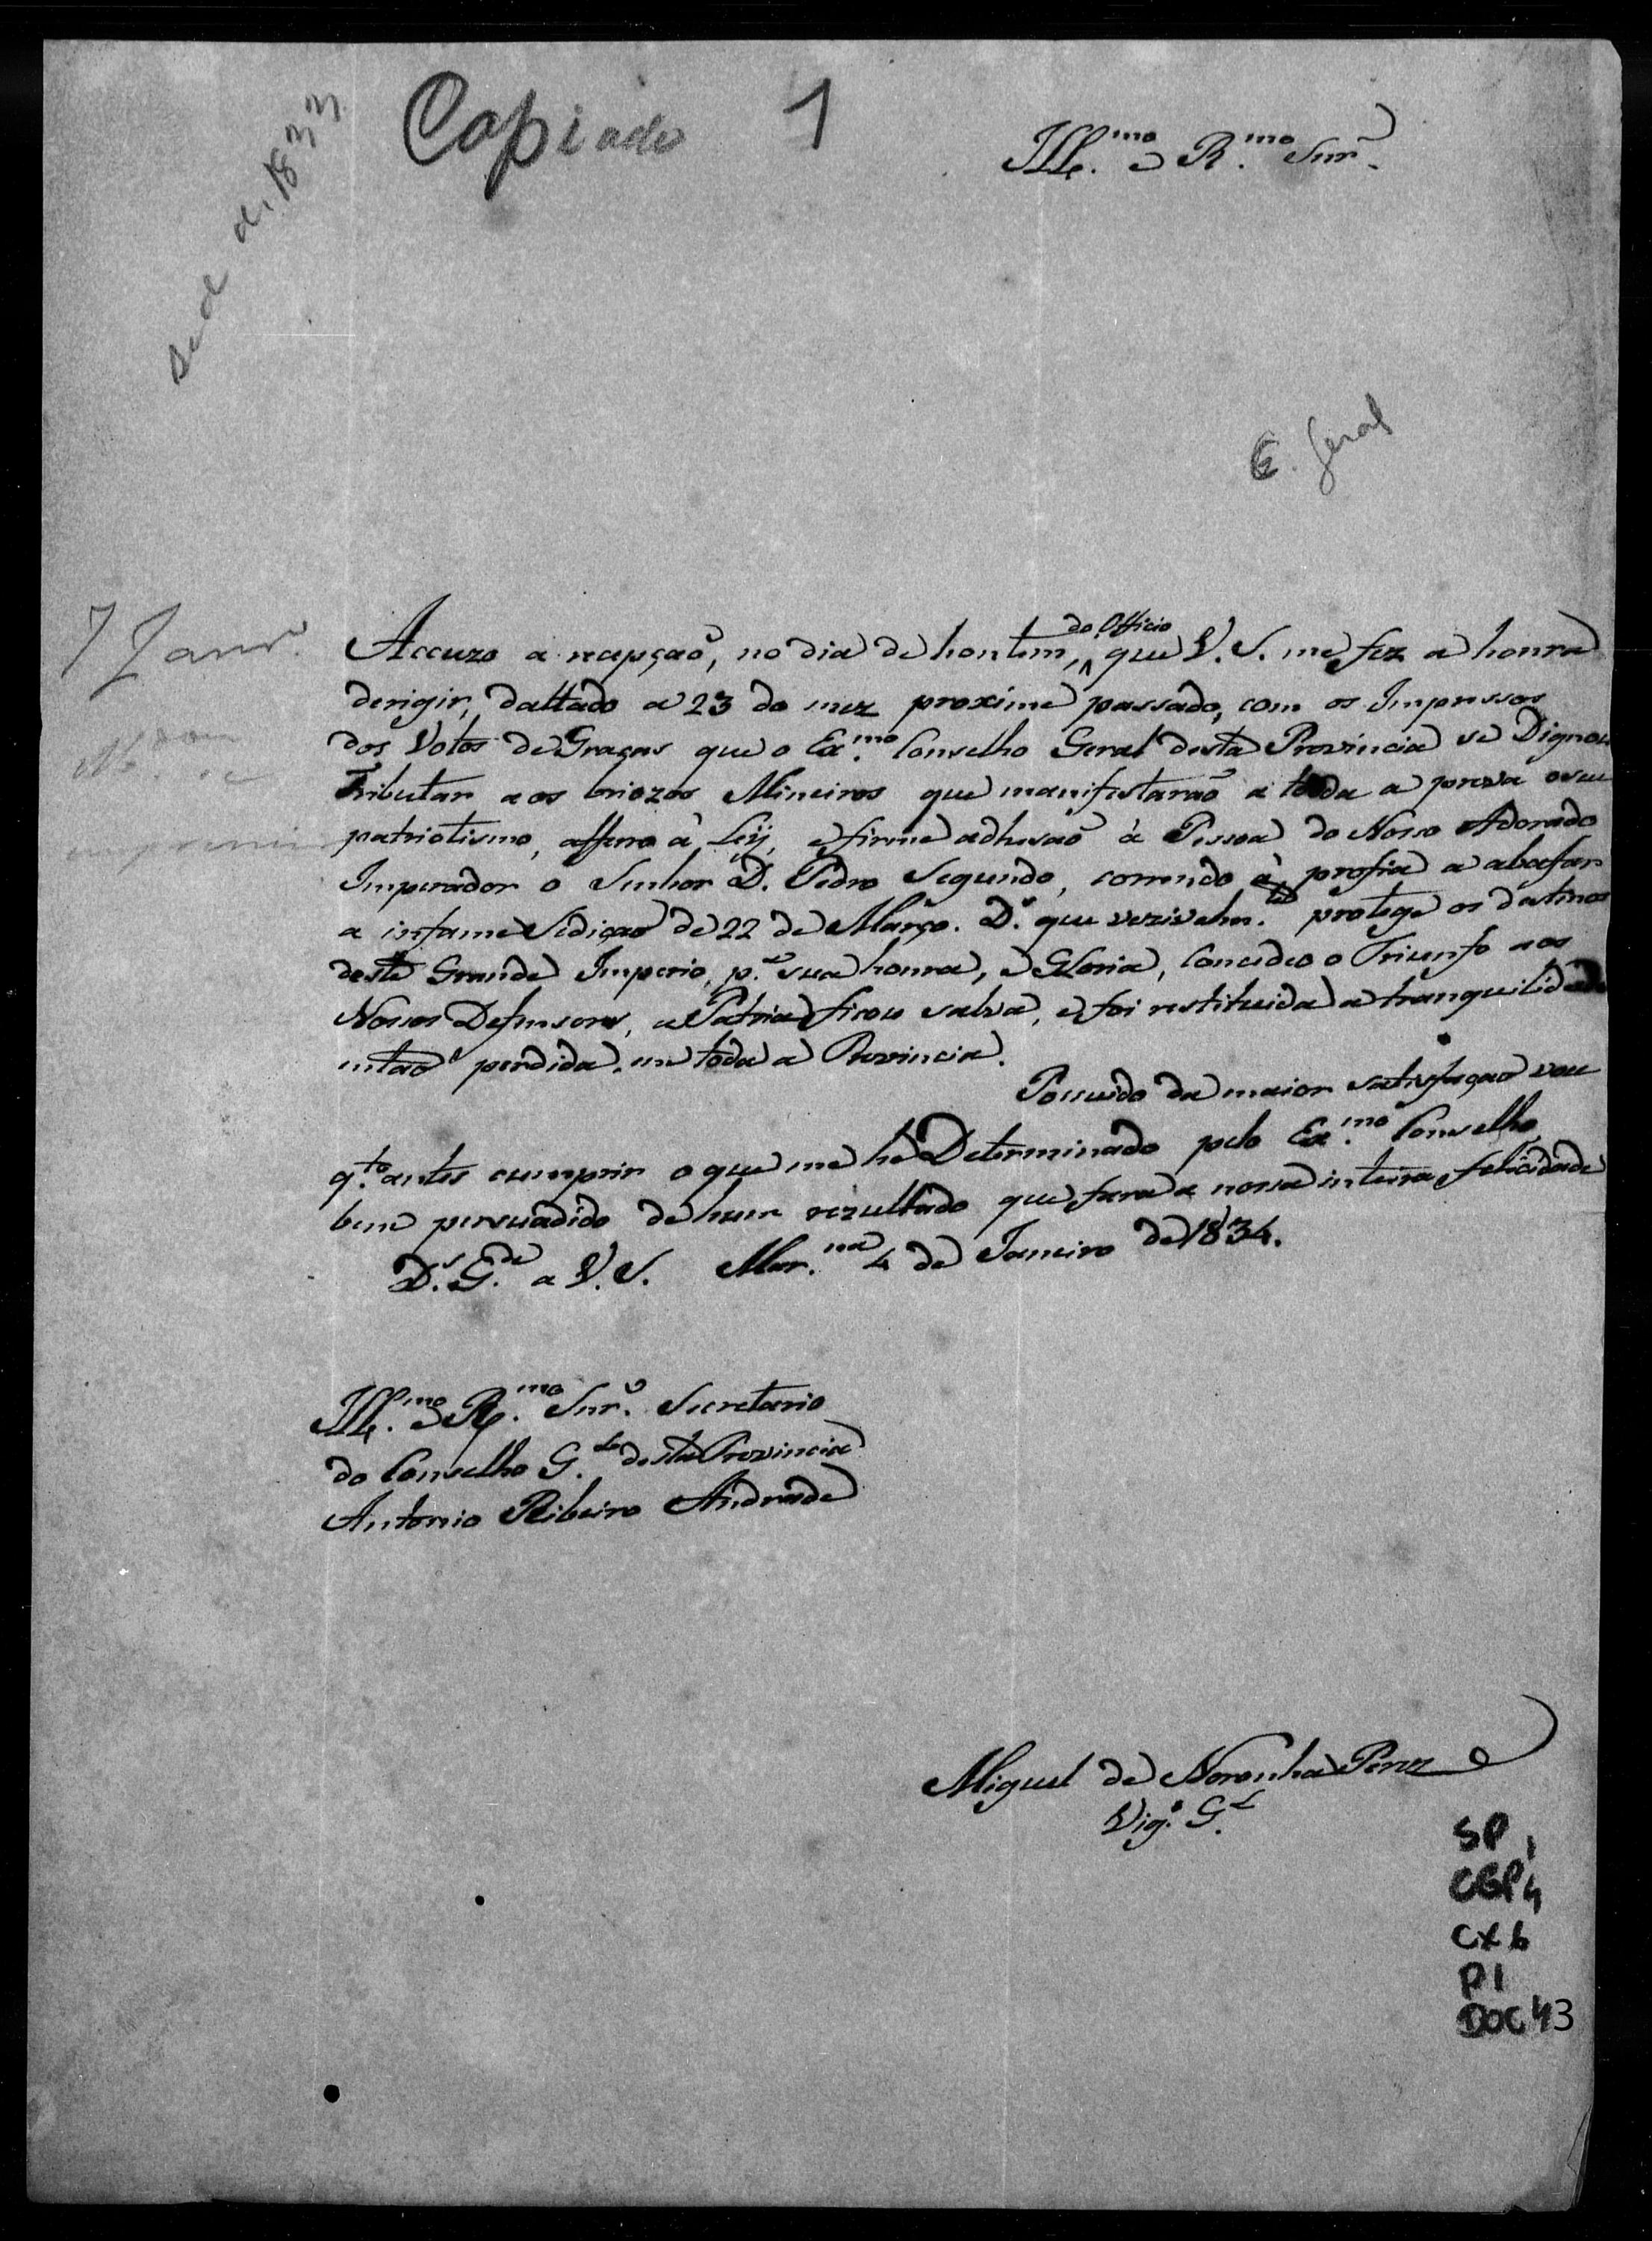 Copiado 1
de 1833
Ill.mo e R.mo Snr.
C. Geral
7 Janr.o
Accuzo a recepçaõ, no dia de hontem, do Officio que V. S. me fez a honra
derigir, dattado a 23 do mez proximo passado, com os Impressos
dos Votos de Graças que o Ex.mo Conselho Geral desta Provincia se Dignou
Tributar aos briozos Mineiros que manifestaraõ a toda a prova o seu
patriotismo, afferro à Leÿ, e firme adhesaõ à Pessoa do Nosso Adorado
Imperador o Senhor D. Pedro Segundo, correndo à profia a abafar
a infame Sediçaõ de 22 de Março. D.s que vezivelm.te protege os destinos
deste Grande Imperio, p.a sua honra, e Gloria, Concedeo o Triunfo aos
Nossos Defensores, a Patria ficou salva, e foi restituida a tranquilidade
entaõ perdida, em toda a Provincia.
Possuido da maior satisfaçaõ vou
q.to antes cumprir o que me he Determinado pelo Ex.mo Conselho,
bem persuadido de hum rezultado que fara a nossa inteira felicidade
D.s G.de a V. S. Mar.na 4 de Janeiro de 1834.
Ill.mo e R.mo Snr. Secretario
do Conselho G.L desta Provincia
Antonio Ribeiro Andrade
Miguel de Noronha Peres
Vig.o G.L
SP 1
CGP4
CX 6
P1
DOC 43